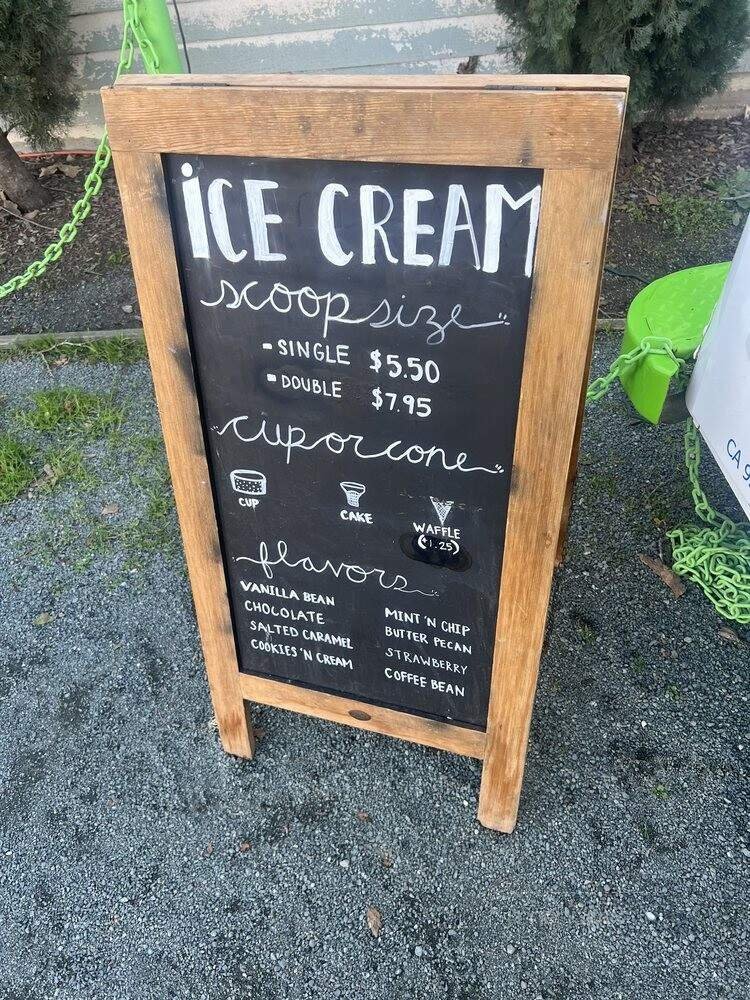 ICE CREAM
scoop size
- SINGLE $5.50
- DOUBLE $7.95
cup or cone
CUP CAKE WAFFLE
(+1.25)
flavors
VANILLA BEAN
CHOCOLATE
SALTED CARAMEL
COOKIES 'N CREAM
MINT 'N CHIP
BUTTER PECAN
STRAWBERRY
COFFEE BEAN
CA